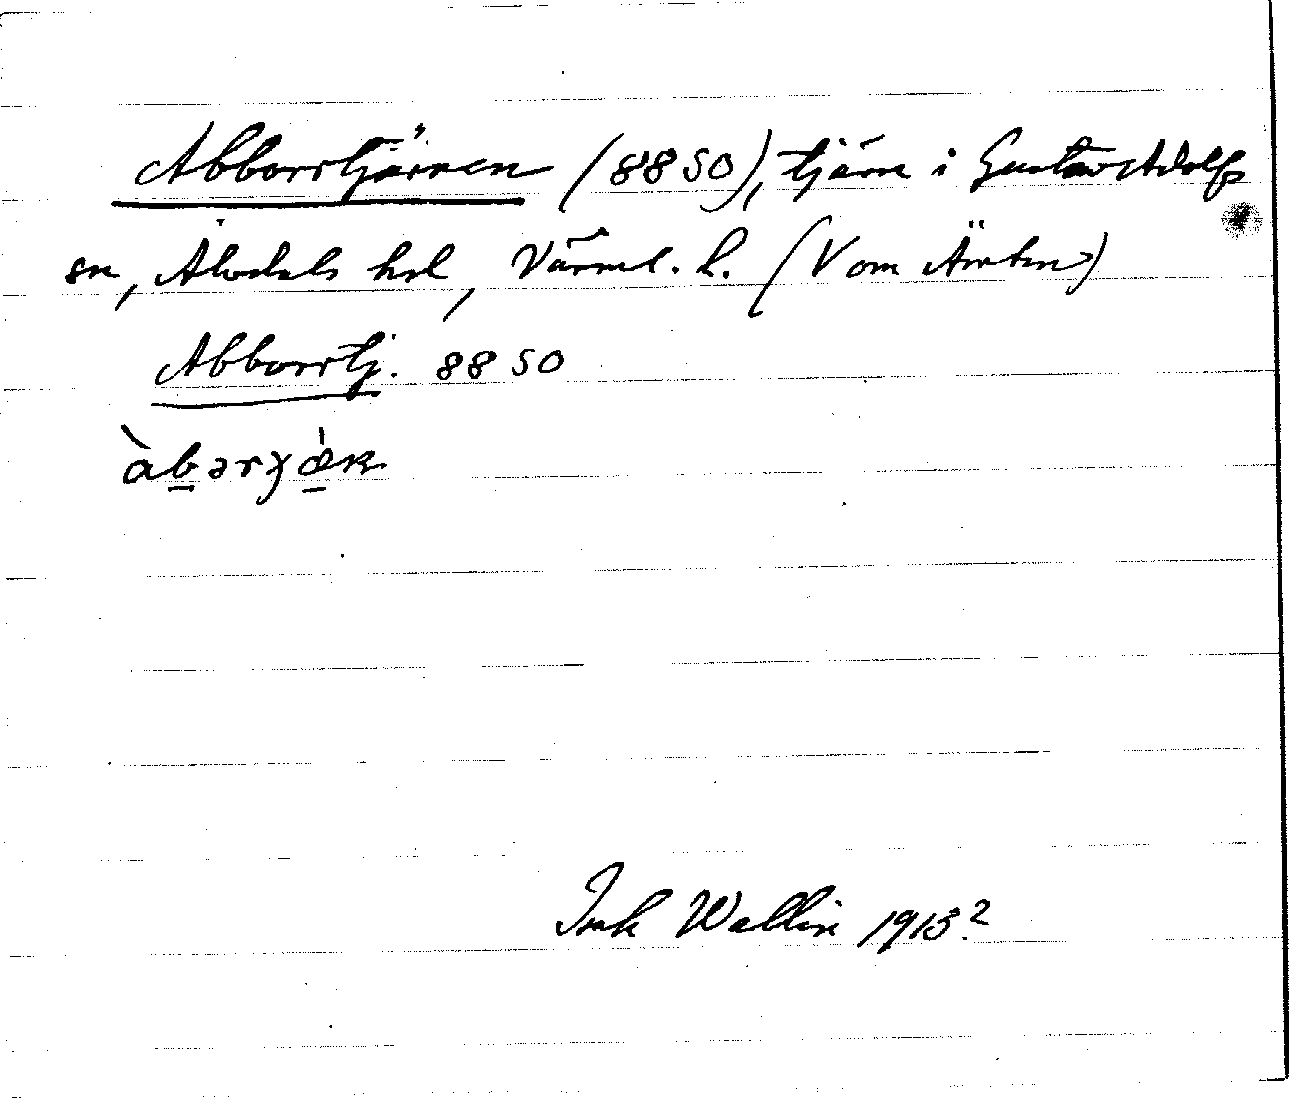 Abborrtjärnen (8850), tjärn i Gustav Adolfs
sn, Älvdals hd, Värml. l. (V om Ärten)
Abborrtj. 8850
Wallin 1913?